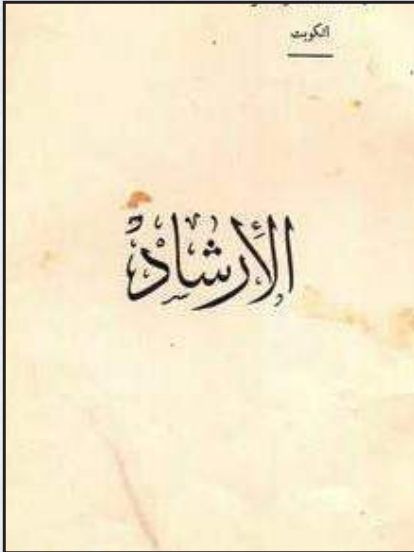 الكويت
الأرشاد